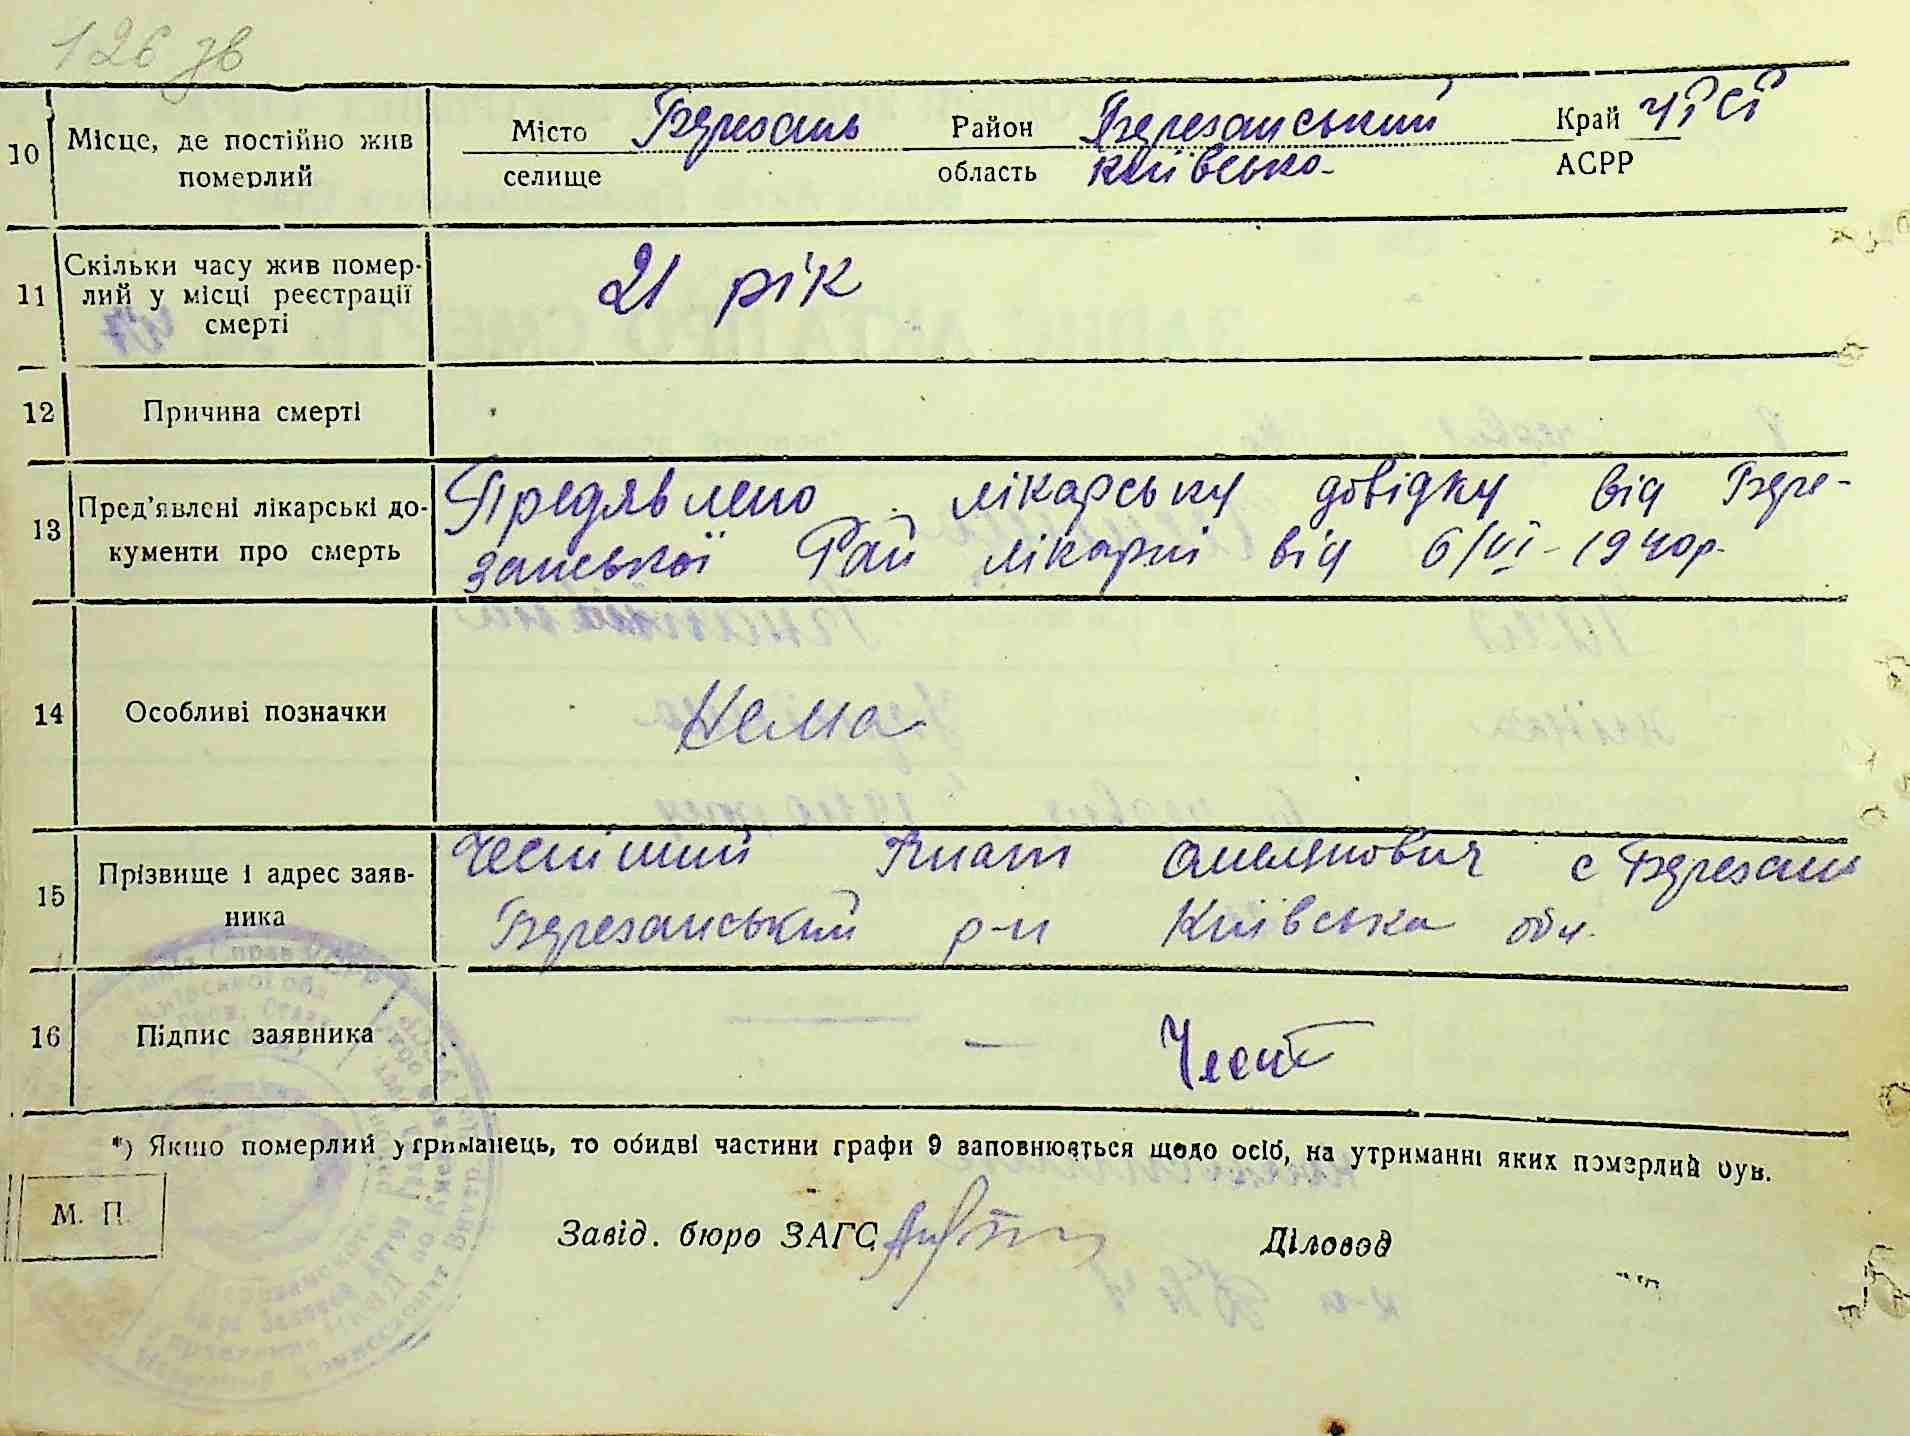 126 зв
10 Місце, де постійно жив померлий
Місто Березань Район Березанський Край УРСР
селище область Київсько- АСРР
11 Скільки часу жив помер-
лий у місці реєстрації
смерті
21 рік
12 Причина смерті
13 Пред'явлені лікарські до-
кументи про смерть
Предявлено лікарську довідку від Бере-
занської Рай лікарні від 6/VI-1940р.
14 Особливі позначки
Нема
15 Прізвище і адрес заяв-
ника
Игнат Омелянович с Березань
Березанський р-н Київська обл.
16 Підпис заявника
—
*) Якщо померлий утриманець, то обидві частини графи 9 заповнюється щодо осіб, на утриманні яких померлий був.
М. П.
Завід. бюро ЗАГС
Діловод